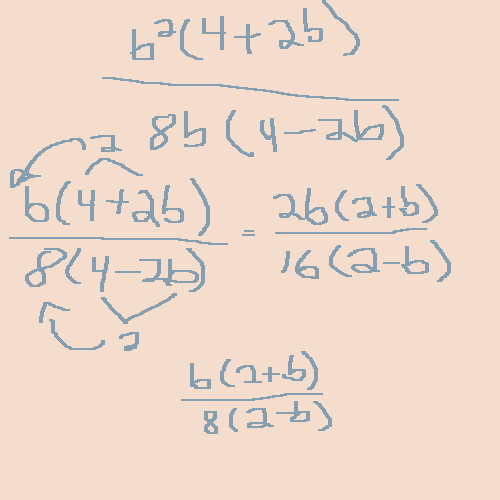 b²(4+2b)
8b(4-2b)
2
b(4+2b) = 2b(2+b)
8(4-2b) 16(2-b)
2
b(2+b)
8(2-b)